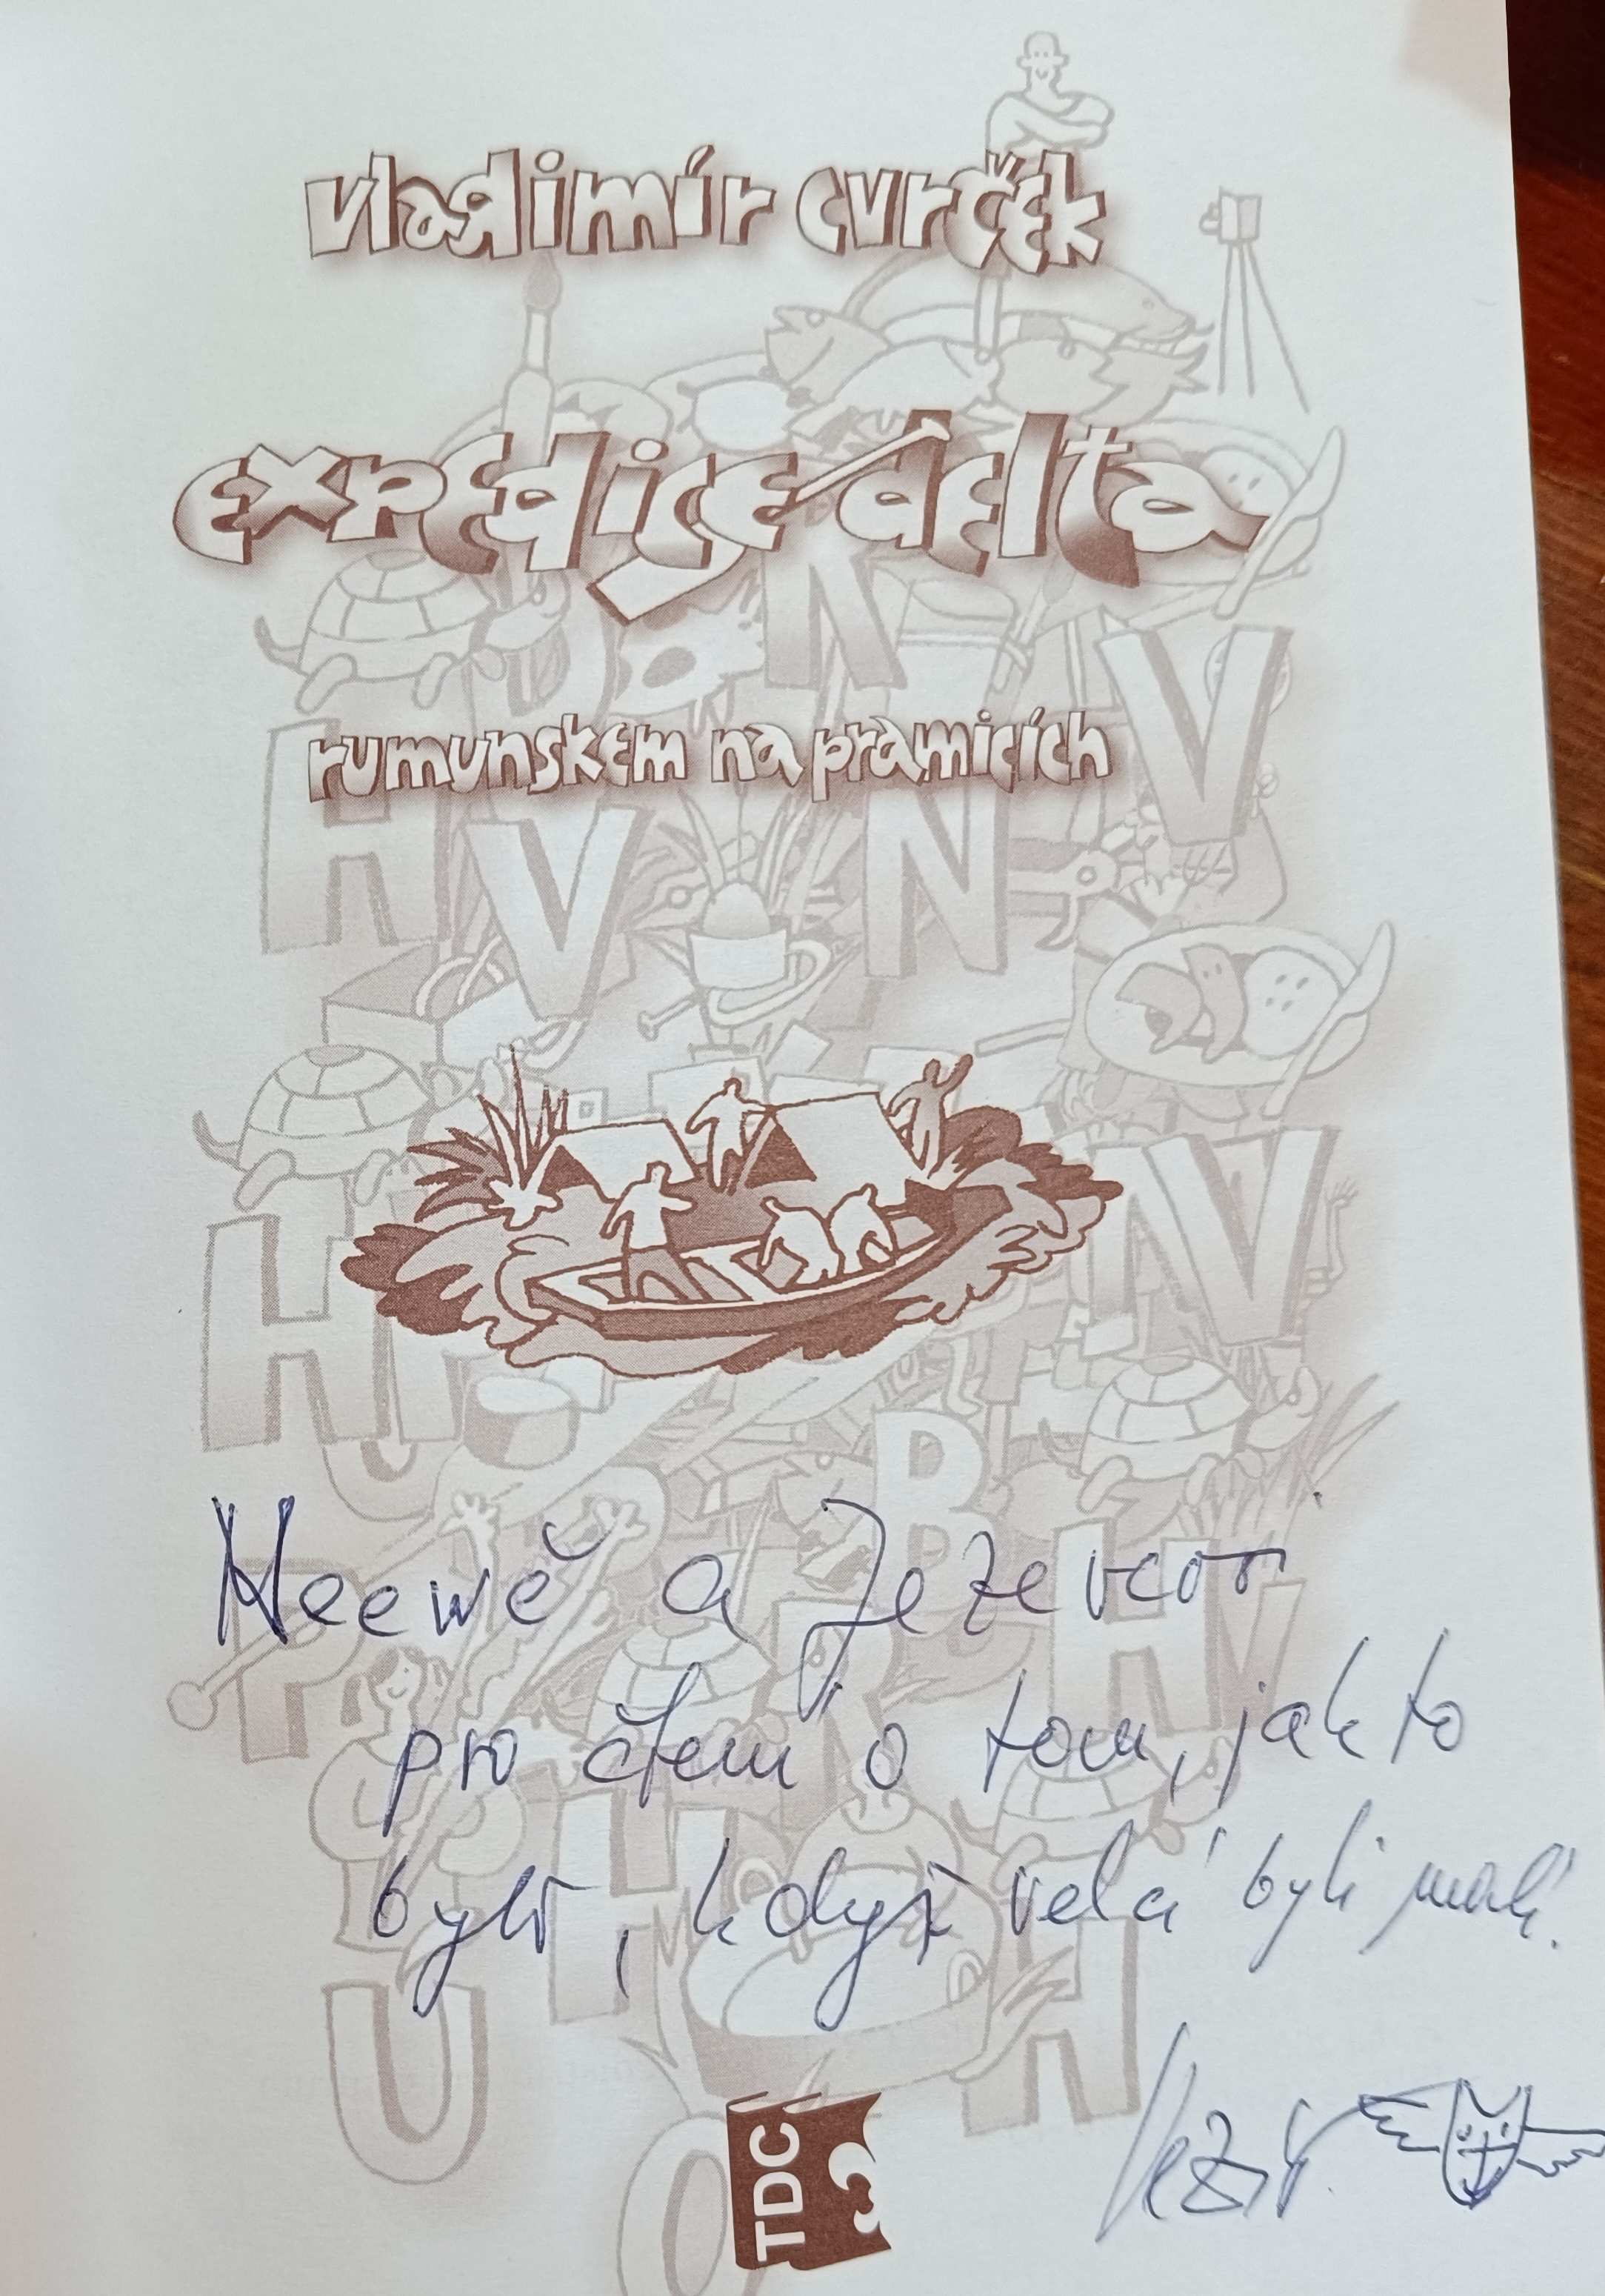 vladimír cvrček
expedice delta
rumunskem na pramicích
Heewě a Jezevcovi
pro čtení o tom, jak to
bylo, když velcí byli malí.
TDC